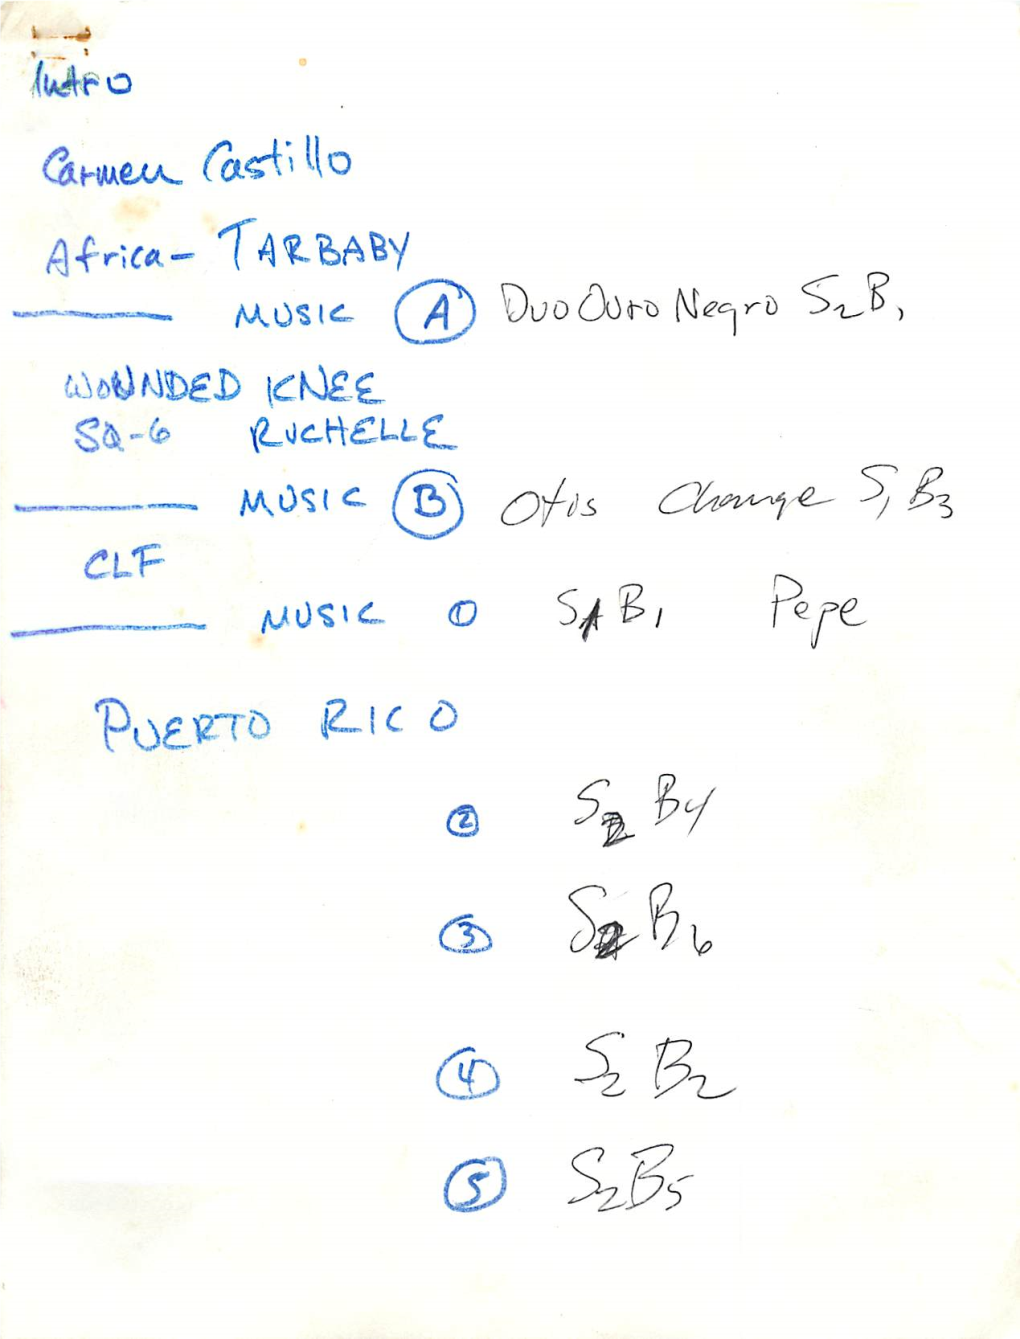 Intro
Carmen Castillo
Africa- TARBABY
MUSIC A Duo Ouro Negro S2 B1
WOUNDED KNEE
SQ-6 RUCHELLE
MUSIC B Otis Change S1 B3
CLF
MUSIC 1 S1 B1 Pepe
PUERTO RICO
2 S2 B4
3 S2 B6
4 S2 B2
5 S2 B5